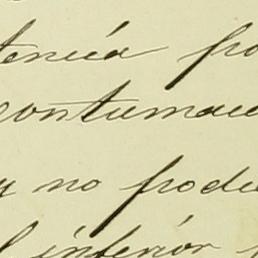 tencia po
contumac
y no podu
l inferior